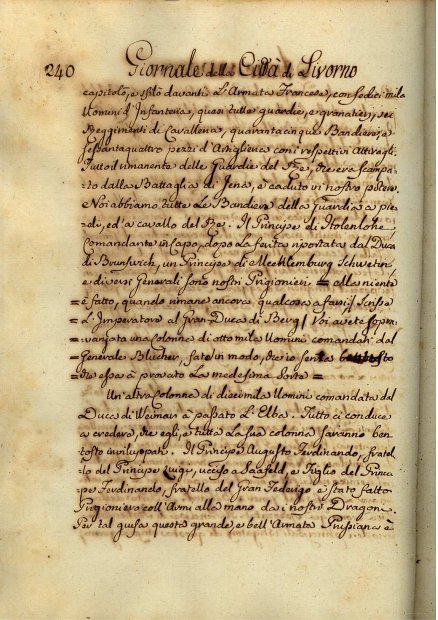 240 Giornale della Città di Livorno
capitolò, e sfilò davanti L'Armata Francese, con sedici mila
Uomini d'Infanteria, quasi tutte guardie, e granatieri, sei
Reggimenti di Cavalleria, quarantacinque Bandiere, e
sessantaquattro pezzi d'Artiglieria con i respettivi Attiragli.
Tutto il rimanente delle Guardie del Re, che era scampa-
to dalla Battaglia di Jena, è caduto in nostro potere,
e Noi abbiamo tutte le Bandiere della guardia a pie-
di, ed'a cavallo del Re. Il Principe di Hohenlohe,
Comandante in Capo, dopo la ferita riportata dal Duca
di Brunswich, un Principe di Mecklemburg Schwetin,
e diversi Generali sono nostri Prigionieri = Ma niente
= è fatto, quando rimane ancora qualcosa a farsi (scrisse
= L'Imperatore al Gran-Duca di Berg) Voi avete sopra-
= vanzata una Colonna di otto mila Uomini comandati dal
= Generale Blücher, fate in modo, che io senta
= che essa à provato La medesima Sorte =
Un'altra Colonna di diecimila Uomini comandata dal
Duca di Weimar à passato L'Elba. Tutto ci conduce
a credere, che egli, e tutta La sua colonna saranno ben
tosto inviluppati. Il Principe Augusto Ferdinando, fratel-
lo del Principe Luigi, ucciso a Saafeld, e Figlio del Princi-
pe Ferdinando, fratello del Gran Federigo è stato fatto
Prigioniero coll'Armi alla mano da i nostri Dragoni.
Per tal guisa questa grande, e bell'Armata Prussiana è